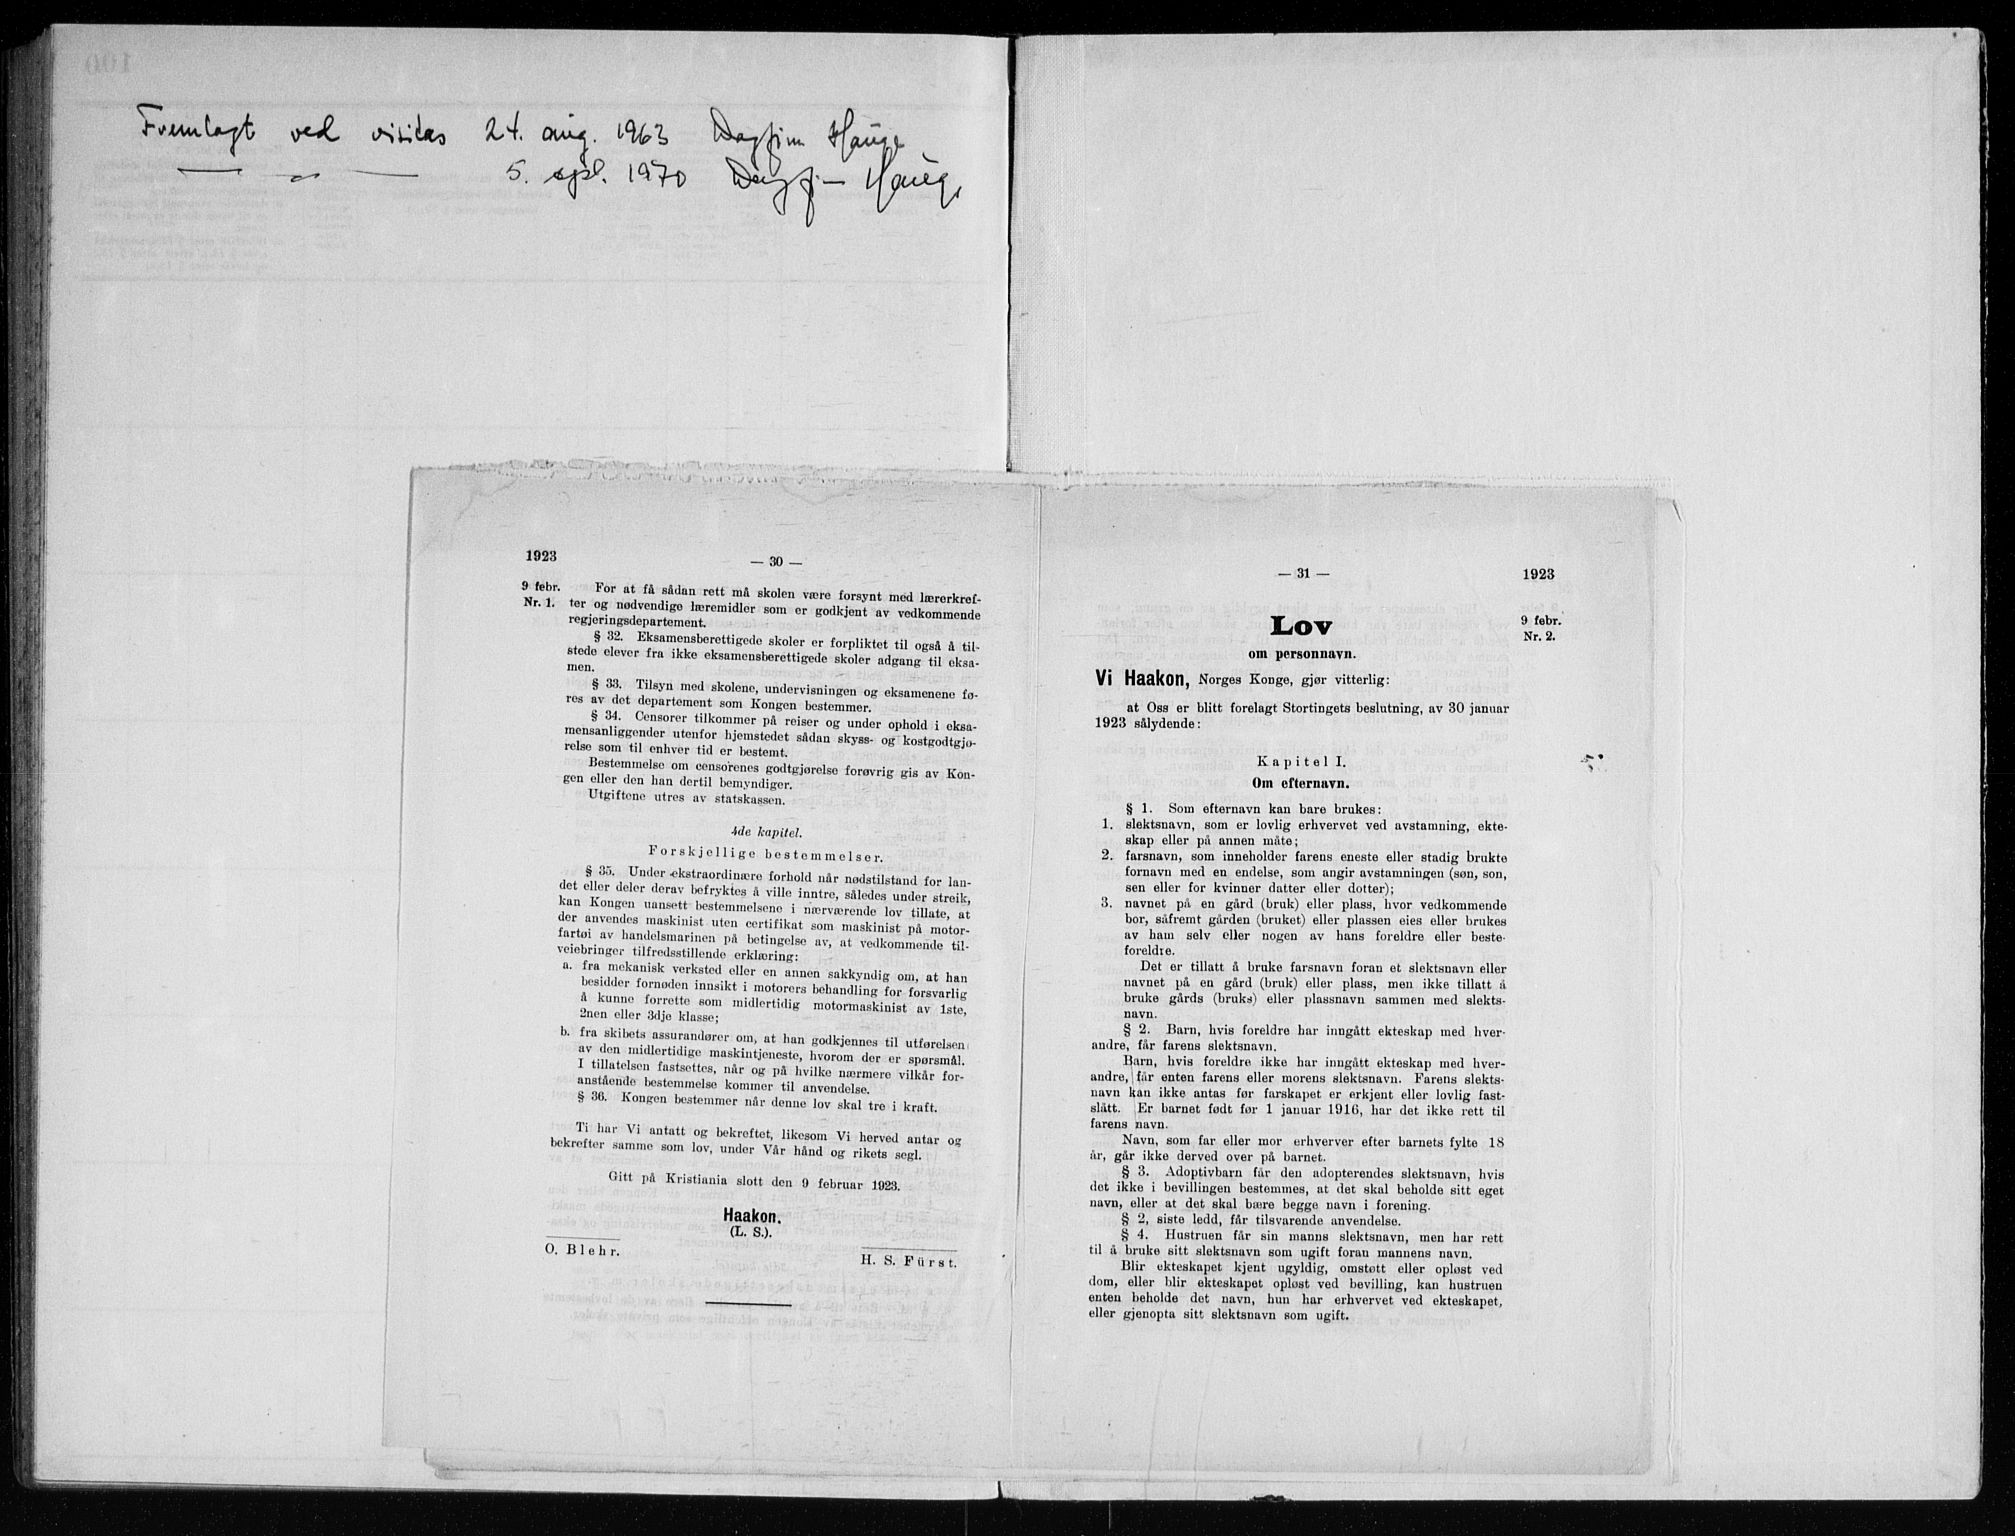 Fremlagt ved visitas 24. aug. 1963 Dagfinn Hauge
— " — 5. spt. 1970 Dagfinn Hauge
1923
— 30 —
9 febr.
Nr. 1.
For at få sådan rett må skolen være forsynt med lærerkref-
ter og nødvendige læremidler som er godkjent av vedkommende
regjeringsdepartement.
§ 32. Eksamensberettigede skoler er forpliktet til også å til-
stede elever fra ikke eksamensberettigede skoler adgang til eksa-
men.
§ 33. Tilsyn med skolene, undervisningen og eksamenene fø-
res av det departement som Kongen bestemmer.
§ 34. Censorer tilkommer på reiser og under ophold i eksa-
mensanliggender utenfor hjemstedet sådan skyss- og kostgodtgjø-
relse som til enhver tid er bestemt.
Bestemmelse om censorenes godtgjørelse forøvrig gis av Kon-
gen eller den han dertil bemyndiger.
Utgiftene utres av statskassen.
4de kapitel.
Forskjellige bestemmelser.
§ 35. Under ekstraordinære forhold når nødstilstand for lan-
det eller deler derav befryktes å ville inntre, således under streik,
kan Kongen uansett bestemmelsene i nærværende lov tillate, at
der anvendes maskinist uten certifikat som maskinist på motor-
fartøi av handelsmarinen på betingelse av, at vedkommende til-
veiebringer tilfredsstillende erklæring:
a. fra mekanisk verksted eller en annen sakkyndig om, at han
besidder fornøden innsikt i motorers behandling for forsvarlig
å kunne forrette som midlertidig motormaskinist av 1ste,
2nen eller 3dje klasse;
b. fra skibets assurandører om, at han godkjennes til utførelsen
av den midlertidige maskintjeneste, hvorom der er spørsmål.
I tillatelsen fastsettes, når og på hvilke nærmere vilkår for-
anstående bestemmelse kommer til anvendelse.
§ 36. Kongen bestemmer når denne lov skal tre i kraft.
Ti har Vi antatt og bekreftet, likesom Vi herved antar og
bekrefter samme som lov, under Vår hånd og rikets segl.
Gitt på Kristiania slott den 9 februar 1923.
Haakon.
(L. S.).
O. Blehr.
H. S. Fürst.
— 31 —
1923
9 febr.
Nr. 2.
Lov
om personnavn.
Vi Haakon, Norges Konge, gjør vitterlig:
at Oss er blitt forelagt Stortingets beslutning, av 30 januar
1923 sålydende:
Kapitel I.
Om efternavn.
§ 1. Som efternavn kan bare brukes:
1. slektsnavn, som er lovlig erhvervet ved avstamning, ekte-
skap eller på annen måte;
2. farsnavn, som inneholder farens eneste eller stadig brukte
fornavn med en endelse, som angir avstamningen (søn, son,
sen eller for kvinner datter eller dotter);
3. navnet på en gård (bruk) eller plass, hvor vedkommende
bor, såfremt gården (bruket) eller plassen eies eller brukes
av ham selv eller nogen av hans foreldre eller beste-
foreldre.
Det er tillatt å bruke farsnavn foran et slektsnavn eller
navnet på en gård (bruk) eller plass, men ikke tillatt å
bruke gårds (bruks) eller plassnavn sammen med slekts-
navn.
§ 2. Barn, hvis foreldre har inngått ekteskap med hver-
andre, får farens slektsnavn.
Barn, hvis foreldre ikke har inngått ekteskap med hver-
andre, får enten farens eller morens slektsnavn. Farens slekts-
navn kan ikke antas før farskapet er erkjent eller lovlig fast-
slått. Er barnet født før 1 januar 1916, har det ikke rett til
farens navn.
Navn, som far eller mor erhverver efter barnets fylte 18
år, går ikke derved over på barnet.
§ 3. Adoptivbarn får den adopterendes slektsnavn, hvis
det ikke i bevillingen bestemmes, at det skal beholde sitt eget
navn, eller at det skal bære begge navn i forening.
§ 2, siste ledd, får tilsvarende anvendelse.
§ 4. Hustruen får sin manns slektsnavn, men har rett
til å bruke sitt slektsnavn som ugift foran mannens navn.
Blir ekteskapet kjent ugyldig, omstøtt eller opløst ved
dom, eller blir ekteskapet opløst ved bevilling, kan hustruen
enten beholde det navn, hun har erhvervet ved ekteskapet,
eller gjenopta sitt slektsnavn som ugift.